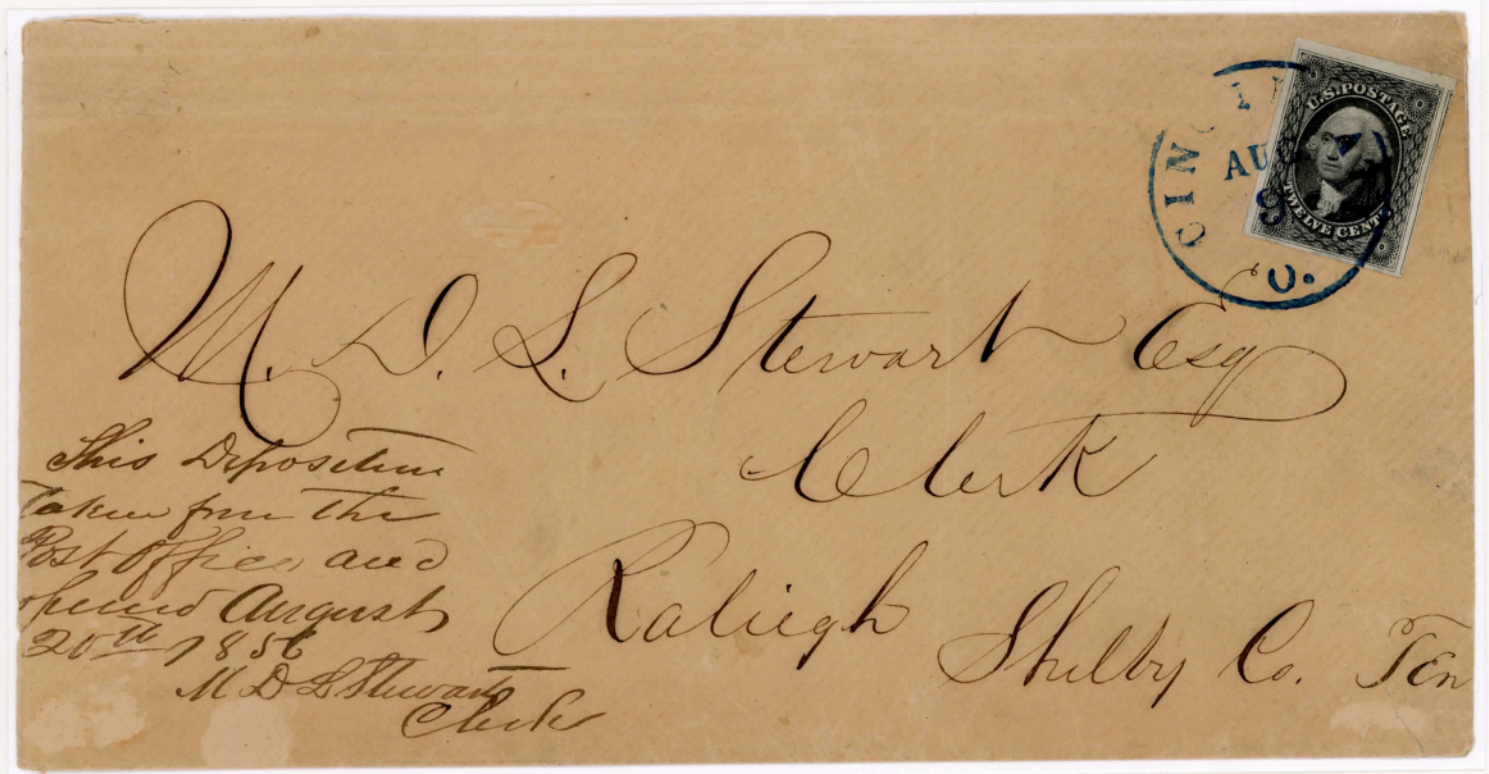 U.S.POSTAGE
TWELVE CENTS
CIN
AUG
9
O.
M. D. L. Stewart Esq
Clerk
Raliegh Shelby Co. Ten
This Deposition
taken from the
Post Office and
opened August
20th 1856
M D L Stewart
Clerk